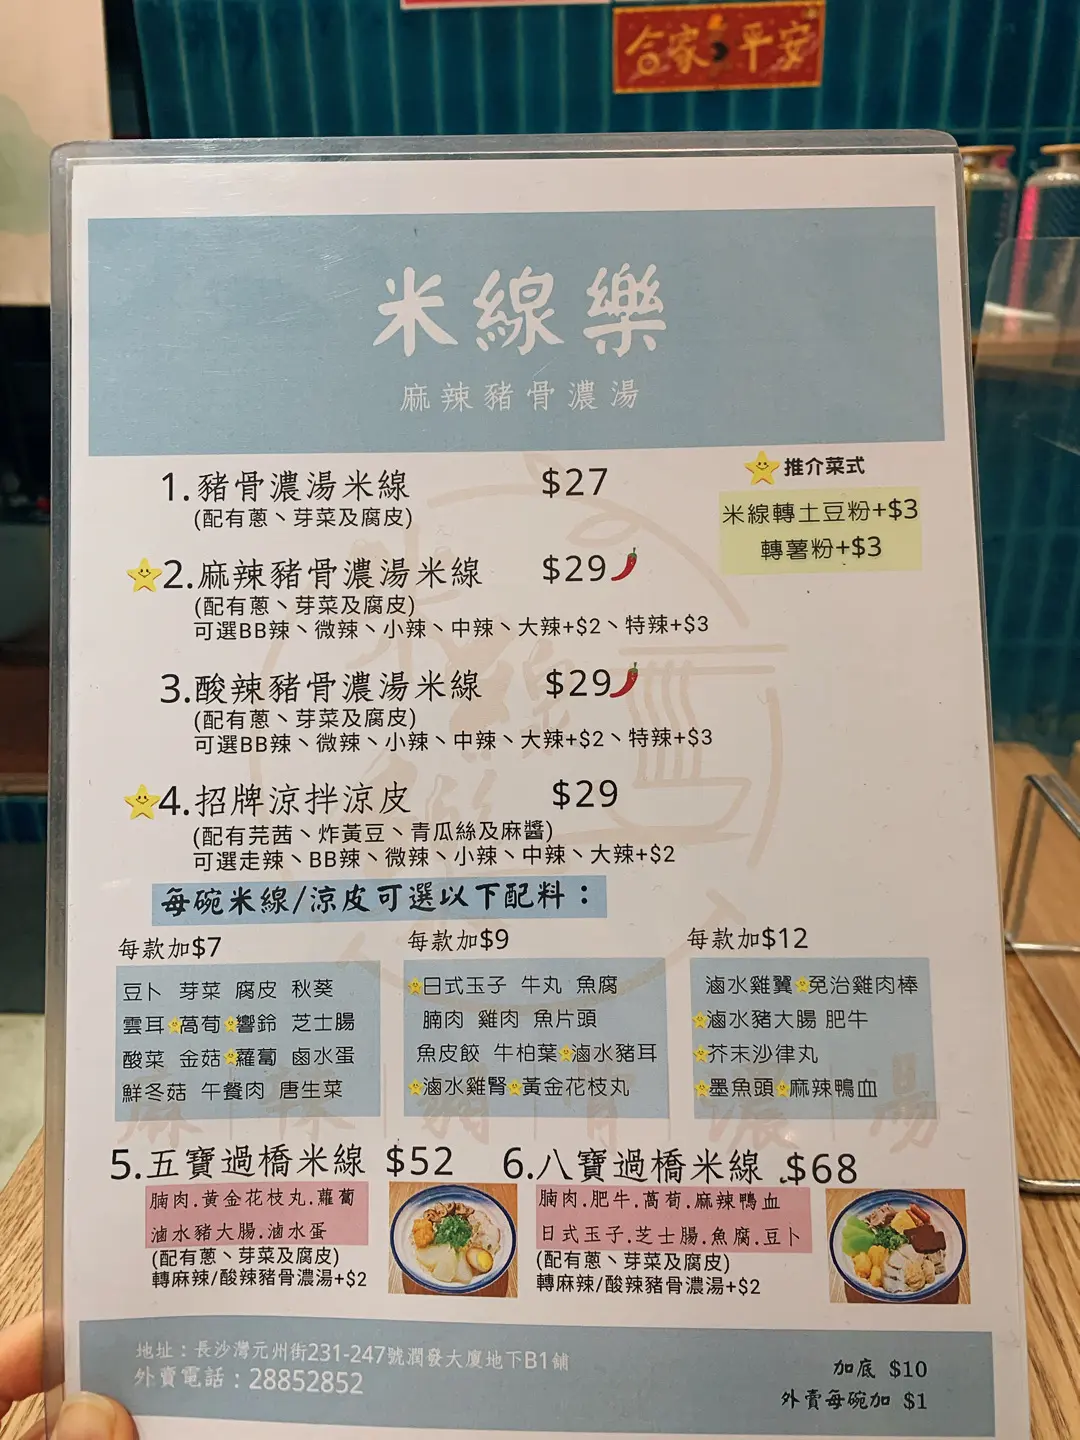 合家平安
米線樂
麻辣豬骨濃湯
1.豬骨濃湯米線 $27
(配有蔥、芽菜及腐皮)
推介菜式
米線轉土豆粉+$3
轉薯粉+$3
2.麻辣豬骨濃湯米線 $29
(配有蔥、芽菜及腐皮)
可選BB辣、微辣、小辣、中辣、大辣+$2、特辣+$3
3.酸辣豬骨濃湯米線 $29
(配有蔥、芽菜及腐皮)
可選BB辣、微辣、小辣、中辣、大辣+$2、特辣+$3
4.招牌涼拌涼皮 $29
(配有芫茜、炸黃豆、青瓜絲及麻醬)
可選走辣、BB辣、微辣、小辣、中辣、大辣+$2
每碗米線/涼皮可選以下配料：
每款加$7
豆卜 芽菜 腐皮 秋葵
雲耳 萵荀 響鈴 芝士腸
酸菜 金菇 蘿蔔 鹵水蛋
鮮冬菇 午餐肉 唐生菜
每款加$9
日式玉子 牛丸 魚腐
腩肉 雞肉 魚片頭
魚皮餃 牛柏葉 滷水豬耳
滷水雞腎 黃金花枝丸
每款加$12
滷水雞翼 免治雞肉棒
滷水豬大腸 肥牛
芥末沙律丸
墨魚頭 麻辣鴨血
5.五寶過橋米線 $52
腩肉.黃金花枝丸.蘿蔔
滷水豬大腸.滷水蛋
(配有蔥、芽菜及腐皮)
轉麻辣/酸辣豬骨濃湯+$2
6.八寶過橋米線 $68
腩肉.肥牛.萵荀.麻辣鴨血
日式玉子.芝士腸.魚腐.豆卜
(配有蔥、芽菜及腐皮)
轉麻辣/酸辣豬骨濃湯+$2
地址：長沙灣元州街231-247號潤發大廈地下B1舖
外賣電話：28852852
加底 $10
外賣每碗加 $1